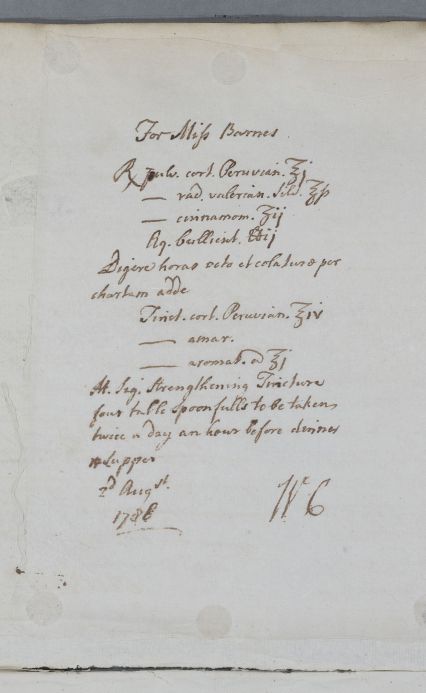 For Miſs Barnes
℞ pulv. cort. Peruvian. ℥j
— rad. valerian. Silv. ℥ſs
— cinnamom. ʒij
Aq. bullient. ℔ij
Digere horas octo et colaturæ per
chartam adde
Tinct. cort. Peruvian. ℥iv
— amar.
— aromat. a ℥j
M. Sig. Strengthening Tincture
four table spoonfulls to be taken
twice a day an hour before dinner
& Supper
2d Augst.
1786
Wr C